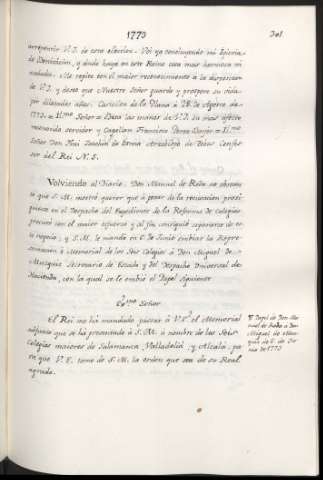 1773
301
arrepentir V.I. de esta eleccion. Voi ya concluyendo mi Epis
de Bendicion, y donde haya en este Reino una mas hermosa mi
rada. Me repito con el maior reconocimiento a la disposicion
de V.I. y deseo que Nuestro Señor guarde y prospere su vida
por dilatados años. Castellon de la Plana à 28 de Agosto de
1773. = Il.mo Señor = Besa las manos de V.I. su mas afecto
Servidor y Capellan Francisco Perez Bayer = Il.mo
Señor Don Frai Joachin de Eleta Arzobispo de Tebas Confe
sor del Rei N. S.
Volviendo al Diario. Don Manuel de Roda
que S.M. mostró querer que à pesar de la recusacion prosi
guiese en el Despacho del Expediente de la Reforma de Colegios
procuró con el maior esfuerzo y al fin consiguió separarse de es
te negocio; y S.M. le mandó en 6 de Junio embiar la Repre
sentacion ò Memorial de los Seis Colegios à Don Miguel de
Muzquiz Secretario de Estado y del Despacho Universal de
Hacienda, con la qual se le embió el Papel siguiente
Ex.mo Señor
El Rei me ha mandado pasar à V.E. el Memorial
adjunto que se ha presentado à S.M. à nombre de los Seis
Colegios maiores de Salamanca, Valladolid, y Alcalà, pa
ra que V.E. tome de S.M. la orden que sea de su Real
agrado.
Papel de Don Ma
nuel de Roda a Don
Miguel de Muz
quiz de 6 de Ju
nio de 1773